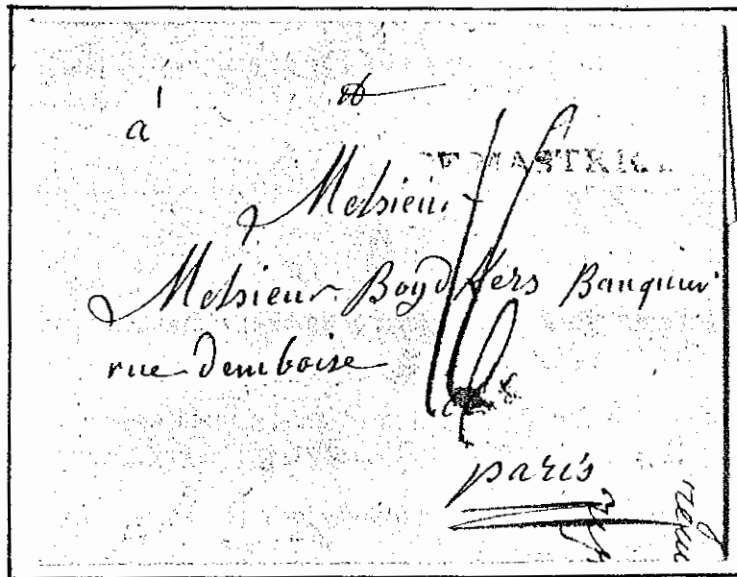 à
DE MASTRIC
Monsieur
Monsieur Boyd Kers Banquier
rue demboise
paris